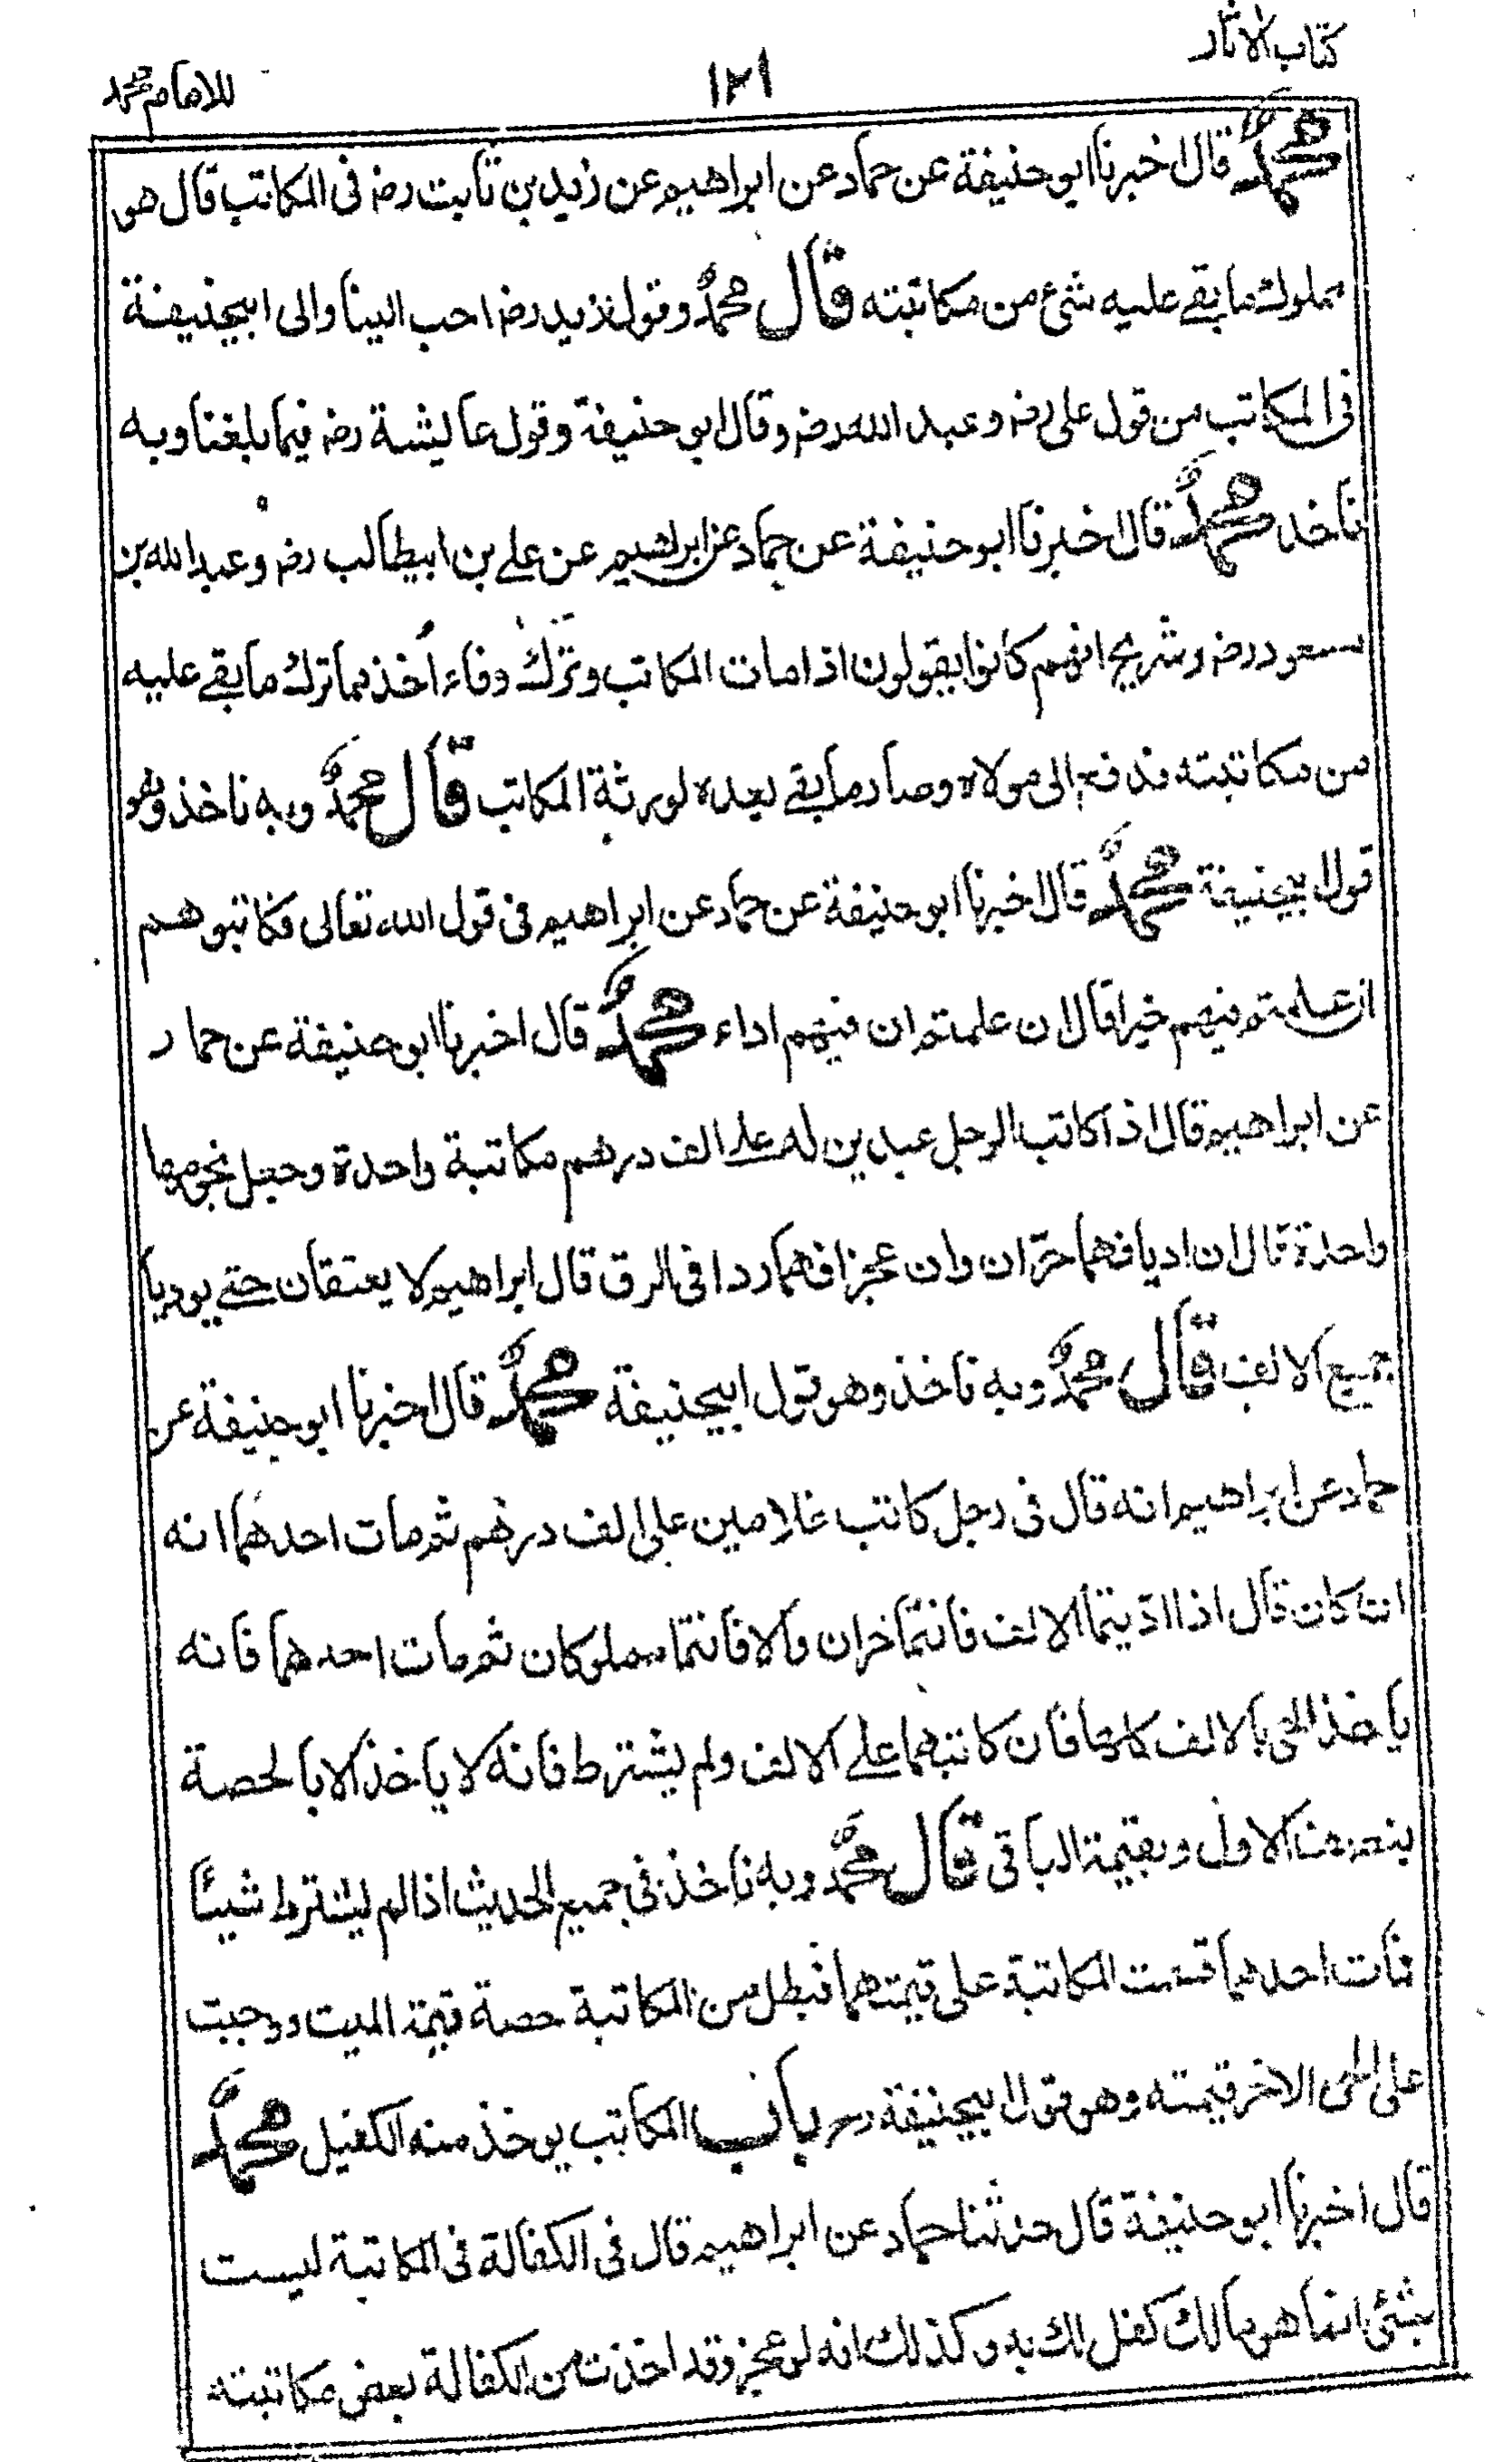 كتاب الاثار
١٢١
للامام محمد
محمد قال اخبرنا ابو حنيفة عن حماد عن ابراهيم عن زيد بن ثابت رضـ فى المكاتب قال هو
مملوك ما بقے عليه شئ من مكاتبته قال محمد وقول زيد رضـ احب الينا والى ابيحنيفة
فى المكاتب من قول على رضـ وعبد الله رضـ وقال ابو حنيفة وقول عايشة رضـ فيما بلغنا وبه
ناخذ محمد قال اخبرنا ابو حنيفة عن حماد عن ابراهيم عن علے بن ابيطالب رضـ وعبد الله بن
مسعود رضـ وشريح انهم كانوا يقولون اذا مات المكاتب وترك وفاء اُخذ مما ترك ما بقے عليه
من مكاتبته فدفع الى مولاه وصار ما بقے بعده لورثة المكاتب قال محمد وبه ناخذ وهو
قول ابيحنيفة محمد قال اخبرنا ابو حنيفة عن حماد عن ابراهيم فى قول الله تعالى فكاتبوهم
ان علمتم فيهم خيرا قال ان علمتم ان فيهم اداء محمد قال اخبرنا ابو حنيفة عن حماد
عن ابراهيم قال اذا كاتب الرجل عبدين له علے الف درهم مكاتبة واحدة وجعل نجومهما
واحدة قال ان اديا فهما حرّان وان عجزا فهما ردا فى الرق قال ابراهيم لا يعتقان حتے يوديا
جميع الالف قال محمد وبه ناخذ وهو قول ابيحنيفة محمد قال اخبرنا ابو حنيفة عن
حماد عن ابراهيم انه قال فى رجل كاتب غلامين على الف درهم ثم مات احدهما انه
ان كان قال اذا ادّيتما الالف فانتما حران والا فانتما مملوكان ثم مات احدهما فانه
ياخذ الحى بالالف كلها فان كاتبهما علے الالف ولم يشترط فانه لا ياخذ الا بالحصة
الاول وبقيمة الباقى قال محمد وبه ناخذ فى جميع الحديث اذا لم يشترط شيئًا
فمات احدهما قسمت المكاتبة على قيمتهما فبطل من المكاتبة حصة قيمة الميت ووجبت
على الحى الاخر قيمته وهو قول ابيحنيفة رحـ باب المكاتب يوخذ منه الكفيل محمد
قال اخبرنا ابو حنيفة قال حدثنا حماد عن ابراهيم قال فى الكفالة فى المكاتبة ليست
بشئ انما هو مالك كفل لك به وكذلك انه لو عجز وقد اخذت من الكفالة بعض مكاتبته